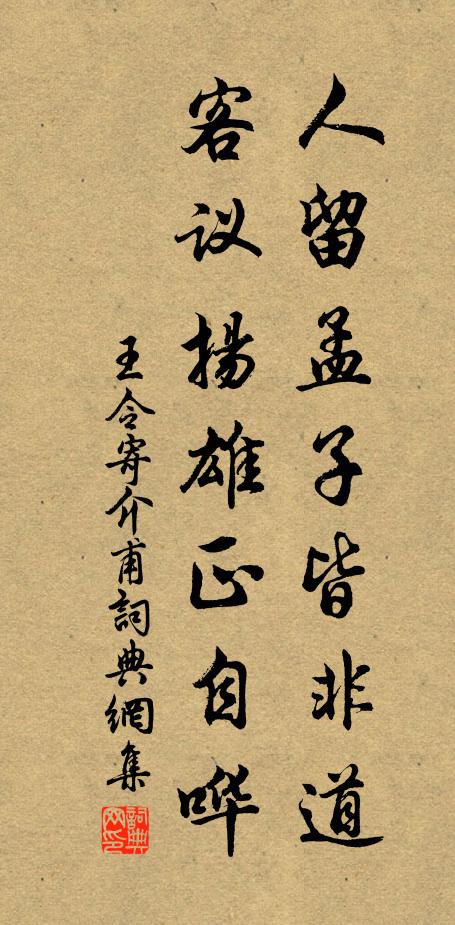 人留孟子皆非道
客议揚雄正自哗
王令寄介甫詞典網集
詞典网印